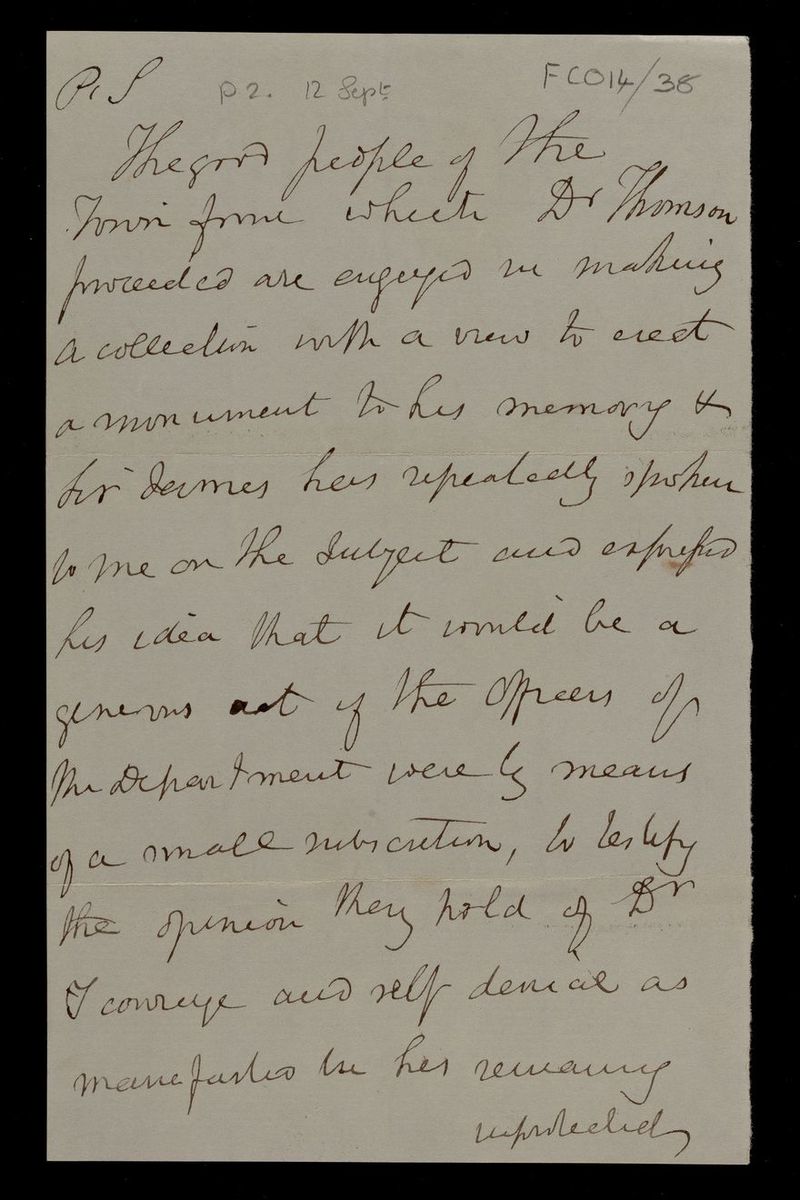 P.S p 2. 12 Sept FCO14/38
The good people of the
Town from which Dr Thomson
proceeded are engaged in making
a collection with a view to erect
a monument to his memory &
Sir James has repeatedly spoken
to me on the subject and expressed
his idea that it would be a
generous act if the officers of
the Department were by means
of a small subscrition, to testify
the opinion they hold of Dr
T courage and self denial as
manifested in his remaing
unprotected